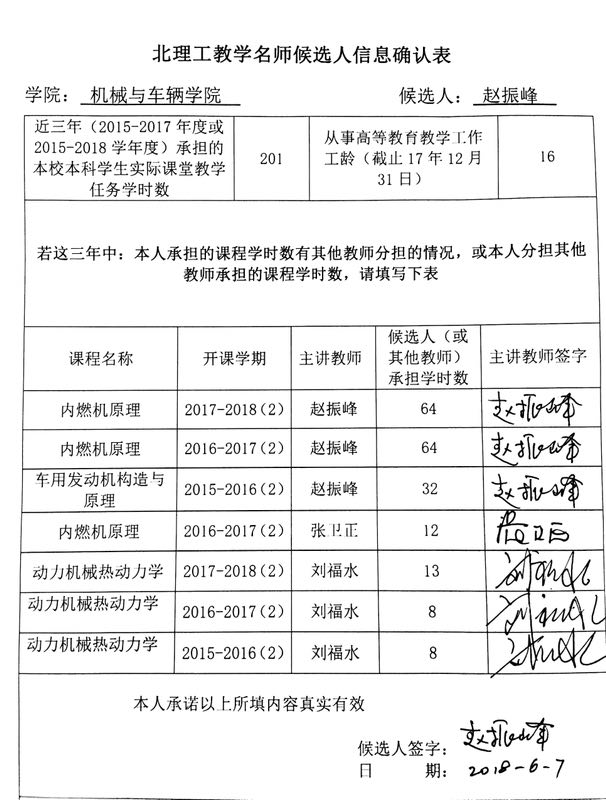 北理工教学名师候选人信息确认表
学院： 机械与车辆学院 候选人： 赵振峰
近三年（2015-2017 年度或
2015-2018 学年度）承担的
本校本科学生实际课堂教学
任务学时数
201
从事高等教育教学工作
工龄（截止 17 年 12 月
31 日）
16
若这三年中：本人承担的课程学时数有其他教师分担的情况，或本人分担其他
教师承担的课程学时数，请填写下表
课程名称 开课学期 主讲教师
候选人（或
其他教师）
承担学时数
主讲教师签字
内燃机原理 2017-2018(2) 赵振峰 64 赵振峰
内燃机原理 2016-2017(2) 赵振峰 64 赵振峰
车用发动机构造与
原理
2015-2016(2) 赵振峰 32 赵振峰
内燃机原理 2016-2017(2) 张卫正 12
动力机械热动力学 2017-2018(2) 刘福水 13
动力机械热动力学 2016-2017(2) 刘福水 8
动力机械热动力学 2015-2016(2) 刘福水 8
本人承诺以上所填内容真实有效
候选人签字： 赵振峰
日 期： 2018-6-7